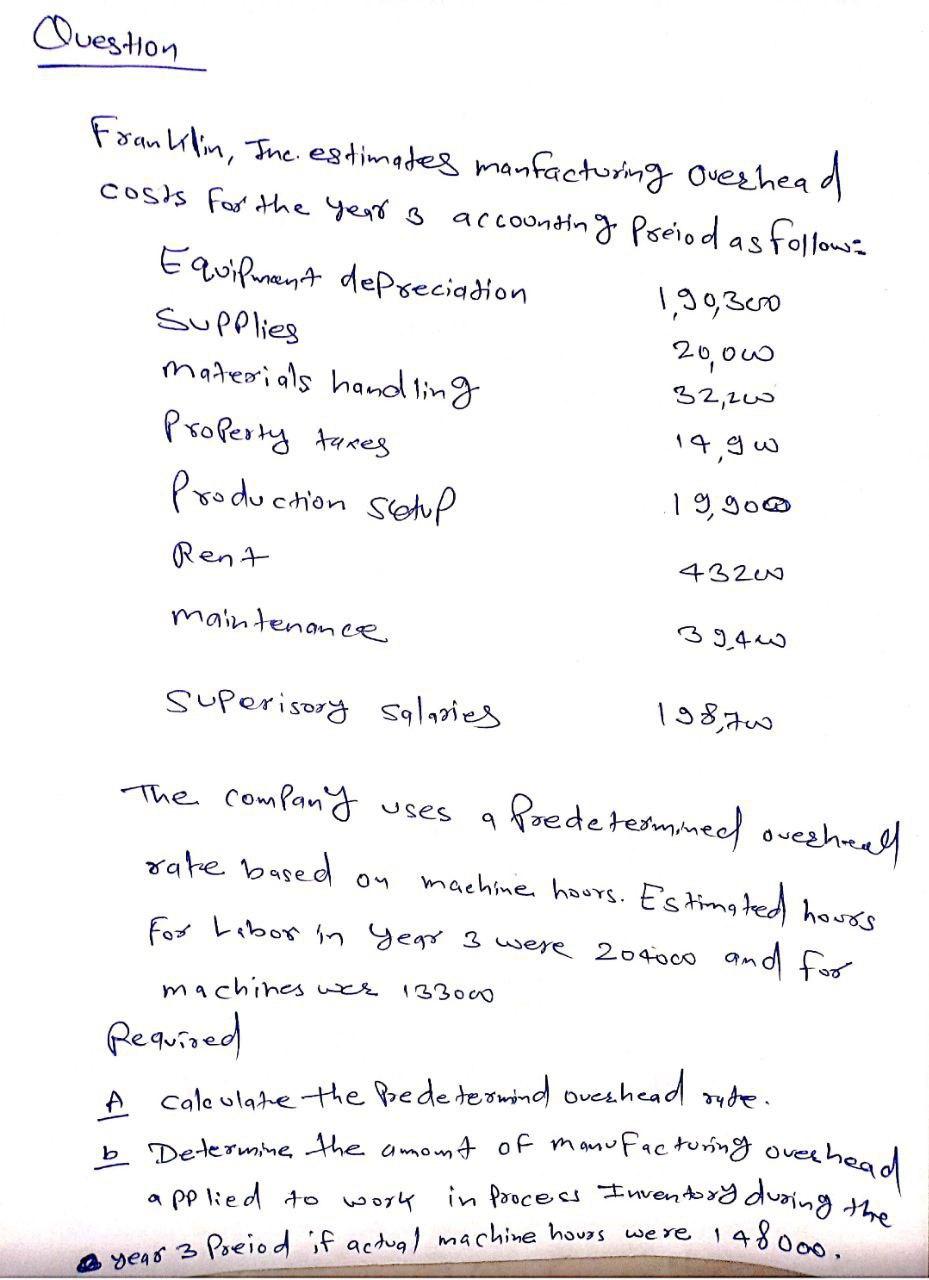 Question
Franklin, Inc. estimates manfacturing Overhead
costs for the year 3 accounting Preiod as follow:
Equipment depreciation 1,90,300
Supplies 20,000
materials handling 32,200
Property taxes 14,900
Production setup 19,900
Rent 43200
maintenance 39,400
Superisory salaries 198,700
The company uses a Predetermined overhead
rate based on machine hours. Estimated hours
for Labor in year 3 were 204000 and for
machines wer 133000
Required
A calculate the Predetermind overhead rate.
b Determine the amomt of manufacturing overhead
applied to work in process Inventory during the
year 3 Preiod if actual machine hours were 148000.